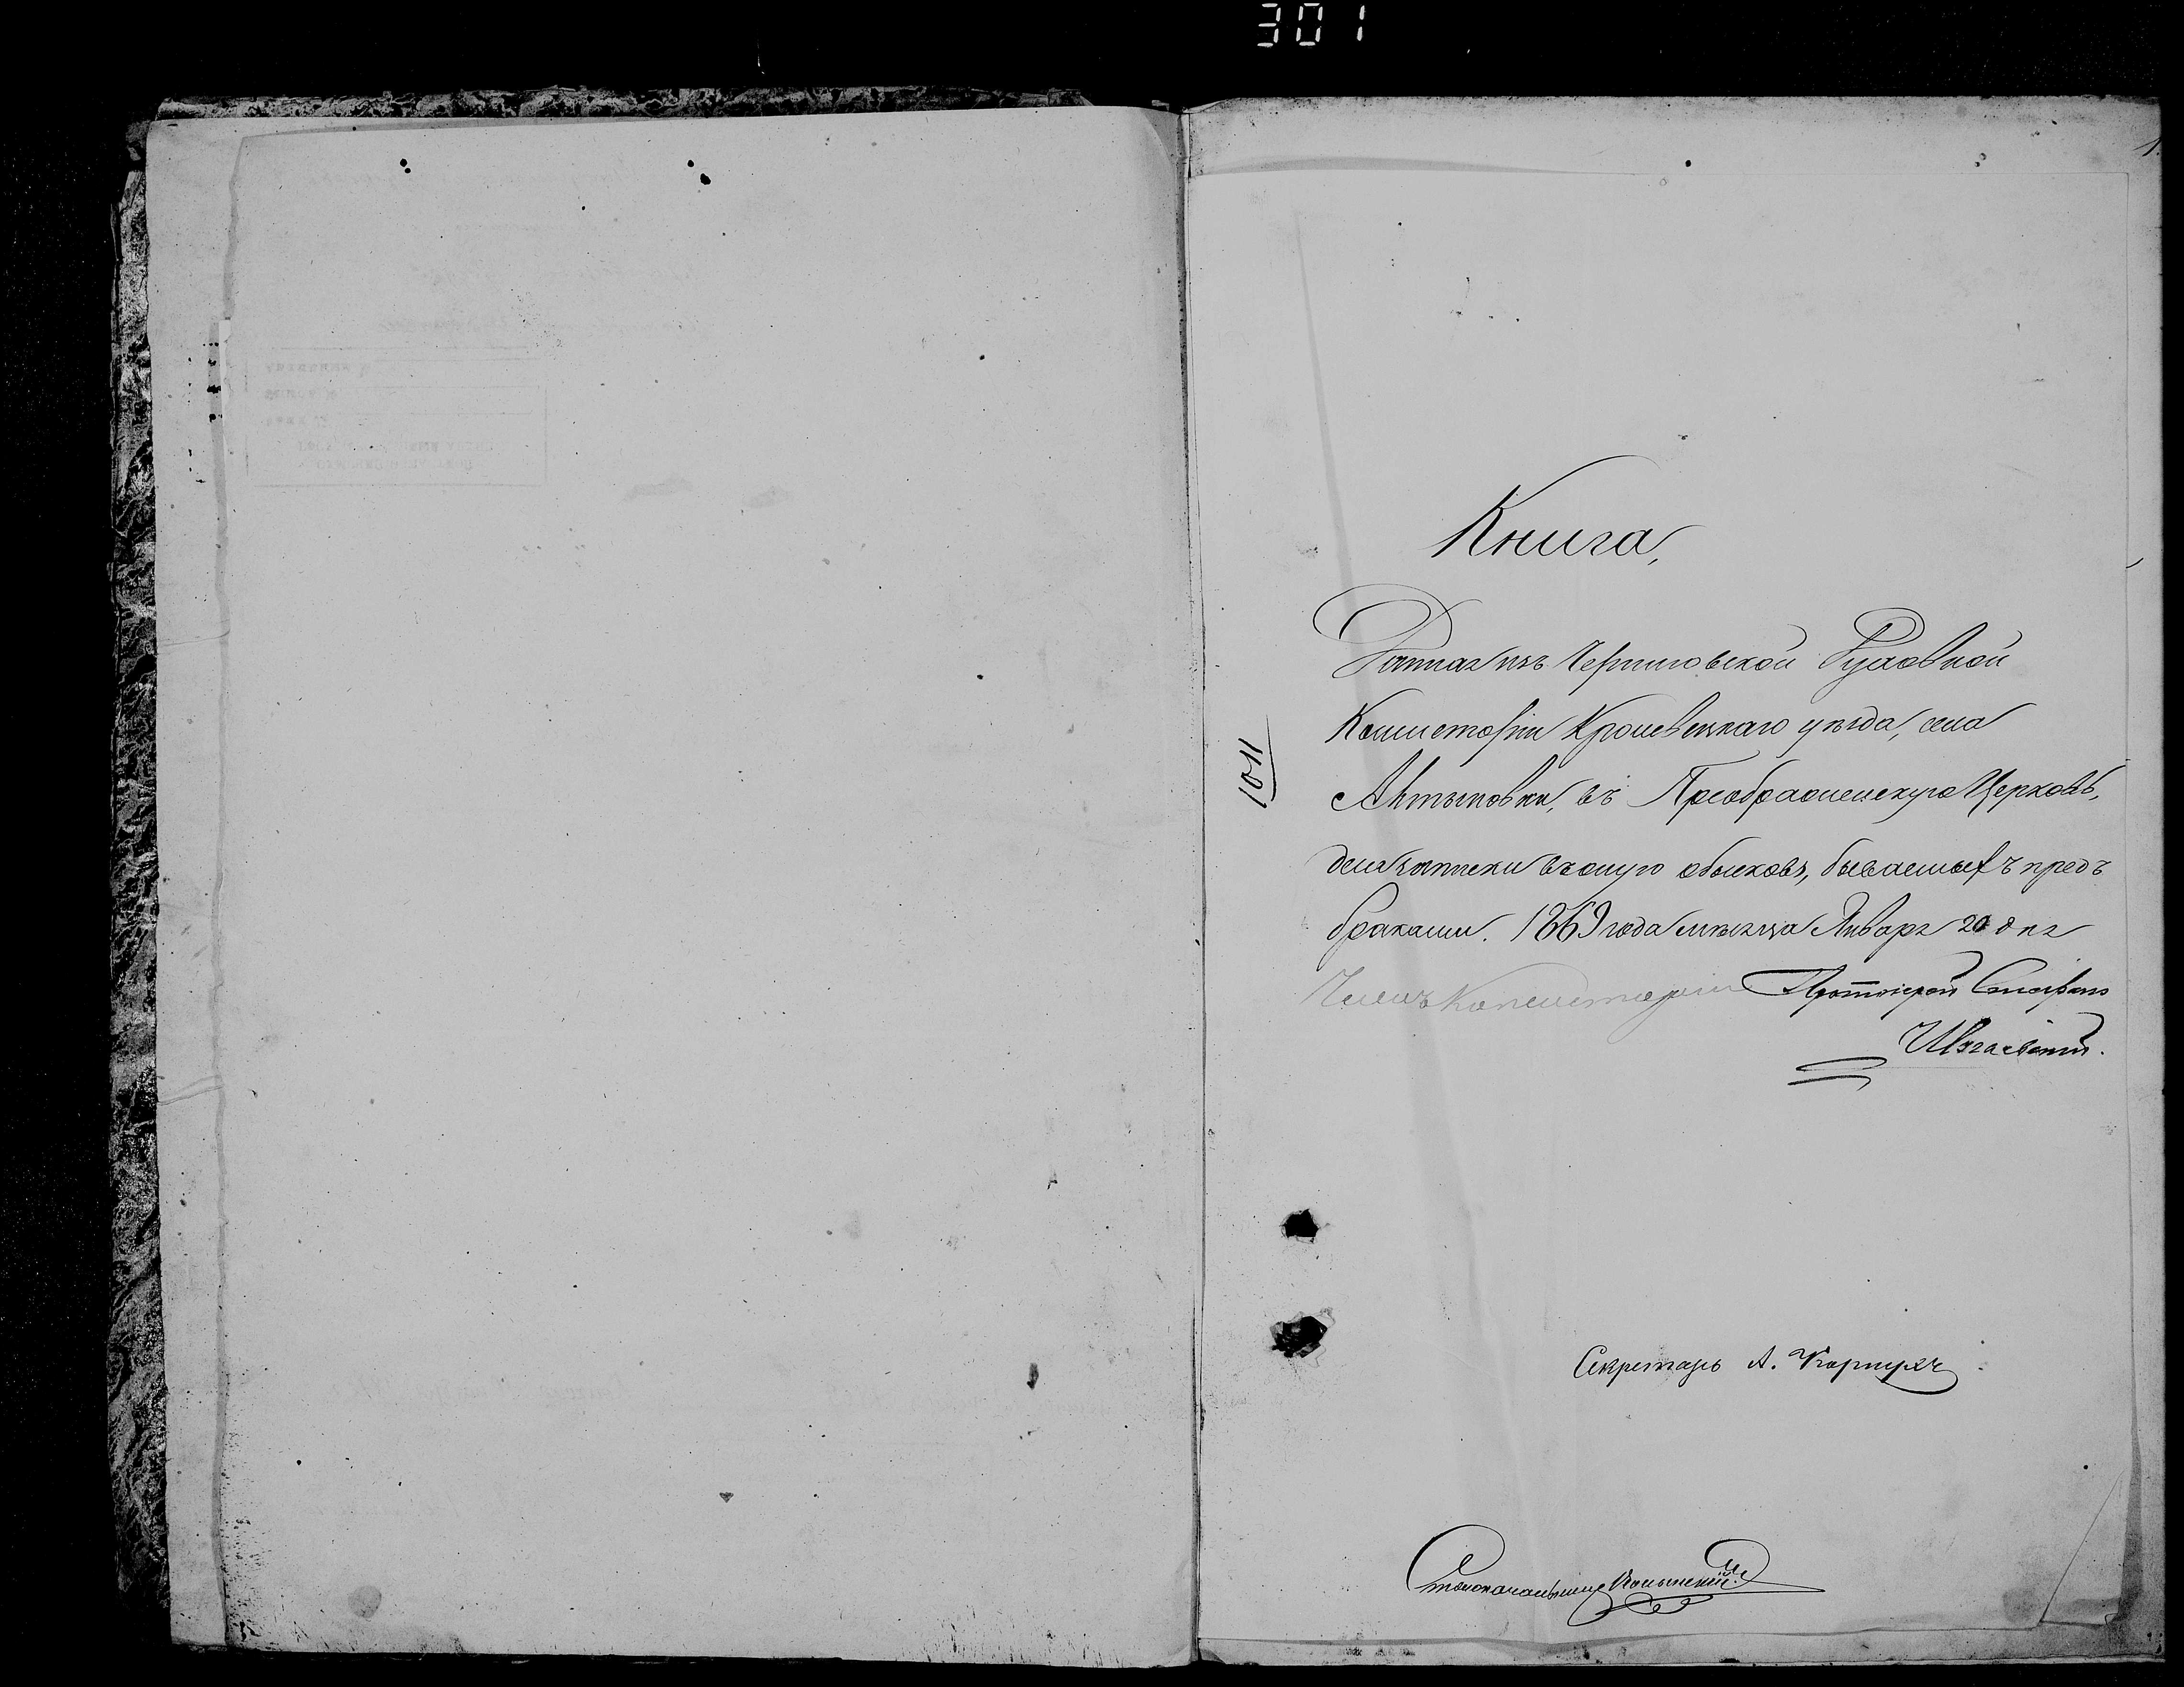 301
1.
Книга,
Данная изъ Черниговской Духовной
Консисторіи Кролевецкаго уѣзда, села
Антыновки, въ Преображенскую Церковь,
для записки въ оную обысковъ, бываемыхъ предъ
браками. 1869 года мѣсяца Января 20 дня
1011
Членъ Консисторіи Протоіерей Стефанъ
Секретарь А.
Столоначальникъ